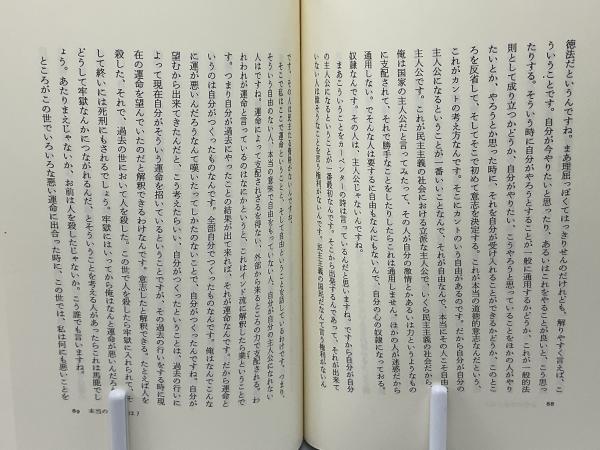 徳法だというんですね。まあ理屈っぽくてはっきりせんのだけれども、解りやすく言えば、こ
ういうことです。自分が今やりたいと思ったり、あるいはこれをやることが良いと、こう思っ
たりする。そういう時に自分がやろうとすることが一般に通用するかどうか、これが一般的法
則として成り立つかどうか、自分がやりたい、こうやろうと思っていることをほかの人がやり
たいとか、やろうとか思った時に、それを自分が受け入れることができるかどうか、このとこ
ろを反省して、そしてそこで初めて意志を決定する。これが本当の道徳的意志なんだという、
これがカントの考え方なんです。そこにカントのいう自由があるのです。だから自分が自分の
主人公になるということが一番いいことなんで、それが自由なんで、本当にその人こそ自由
主人公です。これが民主主義の社会における立派な主人公で、いくら民主主義の社会だから、
俺は国家の主人公だと言ってみたって、その人が自分の激情とかあるいは力というようなもの
に支配されて、それで勝手なことをしたりしたらこれは通用しません。ほかの人が迷惑だから
通用しない。でそんな人は要するに自由もなんにもないんで、自分の心の奴隷になっておる、
奴隷なんです。その人は、主人公じゃないんですね。
まあこういうことをカーペンターの詩は言っているんだと思いますね。ですから自分が自分
の主人公になるということが一番最初なんです。そこから出発するんであって、それが出来て
88
そういう自由のない人、本当の意味で自由をもっていない人、自分が自分の主人公になれない
人はですね。運命によって支配されざるを得ない、外部から来るところの力で支配される。わ
れわれが運命と言っているのはなにかというと、これはインド流に解釈したら業ということで
す。つまり自分が過去にやったことの結果が出て来れば、それが運命なんです。だから運命と
いうのは自分がつくったものなんです。全部自分でつくったものなんです。俺はなんでこんな
に運が悪いんだろうなんて嘆いたってしかたのないことで、自分がつくったんですね。自分が
望むから出来てきたんだと、こう考えたらいい、自分がつくったということは、過去の行いに
よって現在自分がそういう運命を招いているということですが、その自分の行いをする時に現
在の運命を望んでいたのだと解釈できるわけなんです。意志したと解釈できる。たとえば人を
殺した、それで、過去の世において人を殺した。この世で人を殺したら牢獄に入れられて、そ
して終いには死刑にもされるでしょう。牢獄にはいってから俺はなんと運命が悪いんだろう
どうして牢獄なんかにつながれるんだ、とそういうことを考える人があったらこれは馬鹿でし
ょう。あたりまえじゃないか、お前は人を殺したじゃないか。こう誰でも言いますね。
ところがこの世でいろいろな悪い運命に出合った時に、この世では、私は何にも悪いことを
89 本当の